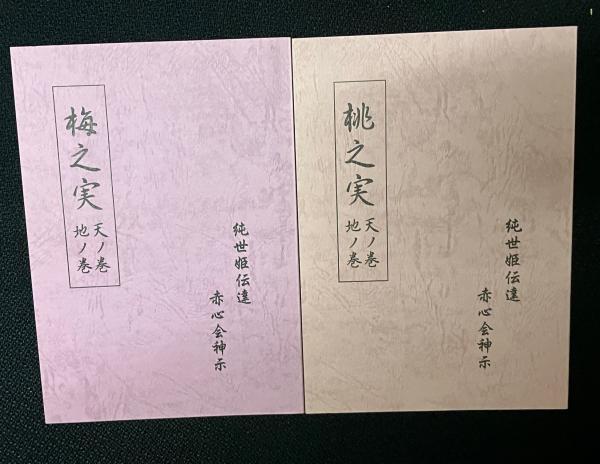 梅之実
天ノ巻
地ノ巻
純世姫伝達
赤心会神示
桃之実
天ノ巻
地ノ巻
純世姫伝達
赤心会神示